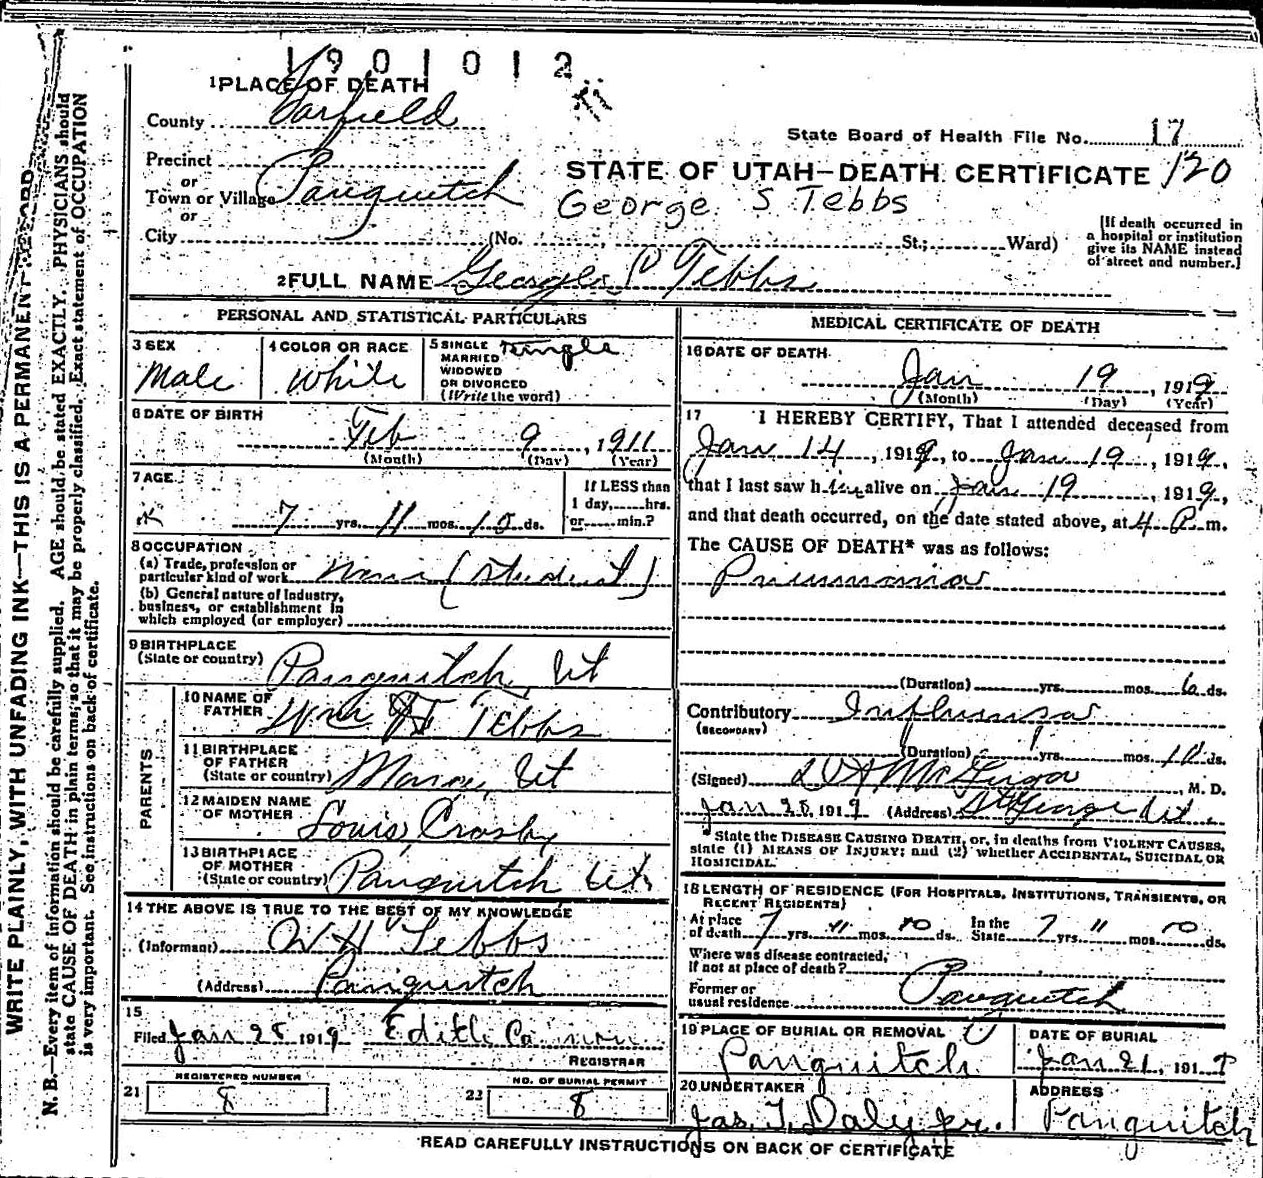 1901012
1 PLACE OF DEATH
County Garfield
State Board of Health File No. 17
Precinct
or
Town or Village Panguitch
or
STATE OF UTAH—DEATH CERTIFICATE 120
George S Tebbs
City (No. St.; Ward)
[If death occurred in
a hospital or institution
give its NAME instead
of street and number.]
2 FULL NAME George S Tebbs
PERSONAL AND STATISTICAL PARTICULARS
3 SEX
Male
4 COLOR OR RACE
White
5 SINGLE
MARRIED
WIDOWED
OR DIVORCED
(Write the word)
Single
6 DATE OF BIRTH
Feb 9, 1911
(Month) (Day) (Year)
7 AGE
7 yrs. 11 mos. 10 ds.
If LESS than
1 day, hrs.
or min.?
8 OCCUPATION
(a) Trade, profession or
particular kind of work None (Student)
(b) General nature of Industry,
business, or establishment in
which employed (or employer)
9 BIRTHPLACE
(State or country) Panguitch, Ut
PARENTS
10 NAME OF
FATHER Wm H Tebbs
11 BIRTHPLACE
OF FATHER
(State or country) Ut
12 MAIDEN NAME
OF MOTHER Louis Crosby
13 BIRTHPLACE
OF MOTHER
(State or country) Panguitch Ut
14 THE ABOVE IS TRUE TO THE BEST OF MY KNOWLEDGE
(Informant) W H Tebbs
(Address) Panguitch
15
Filed Jan 25 1919 Edith
REGISTRAR
REGISTERED NUMBER
21 8
NO. OF BURIAL PERMIT
22 8
MEDICAL CERTIFICATE OF DEATH
16 DATE OF DEATH
Jan 19, 1919
(Month) (Day) (Year)
17 I HEREBY CERTIFY, That I attended deceased from
Jan 14, 1919, to Jan 19, 1919,
that I last saw him alive on Jan 19, 1919,
and that death occurred, on the date stated above, at 4 P m.
The CAUSE OF DEATH* was as follows:
Pneumonia
(Duration) yrs. mos. 6 ds.
Contributory Influenza
(SECONDARY)
(Duration) yrs. mos. ds.
(Signed) M. D.
Jan 25, 1919 (Address) St George Ut.
*State the DISEASE CAUSING DEATH, or, in deaths from VIOLENT CAUSES,
state (1) MEANS OF INJURY; and (2) whether ACCIDENTAL, SUICIDAL OR
HOMICIDAL.
18 LENGTH OF RESIDENCE (FOR HOSPITALS, INSTITUTIONS, TRANSIENTS, OR
RECENT RESIDENTS)
At place
of death 7 yrs. 11 mos. 10 ds. In the
State 7 yrs. 11 mos. 10 ds.
Where was disease contracted,
if not at place of death?
Former or
usual residence Panguitch
19 PLACE OF BURIAL OR REMOVAL
Panguitch
DATE OF BURIAL
Jan 21, 1919
20 UNDERTAKER
Jas. T. Daly Jr.
ADDRESS
Panguitch
READ CAREFULLY INSTRUCTIONS ON BACK OF CERTIFICATE
WRITE PLAINLY, WITH UNFADING INK—THIS IS A PERMANENT RECORD
N. B.—Every item of information should be carefully supplied. AGE should be stated EXACTLY. PHYSICIANS should
state CAUSE OF DEATH in plain terms, so that it may be properly classified. Exact statement of OCCUPATION
is very important. See instructions on back of certificate.